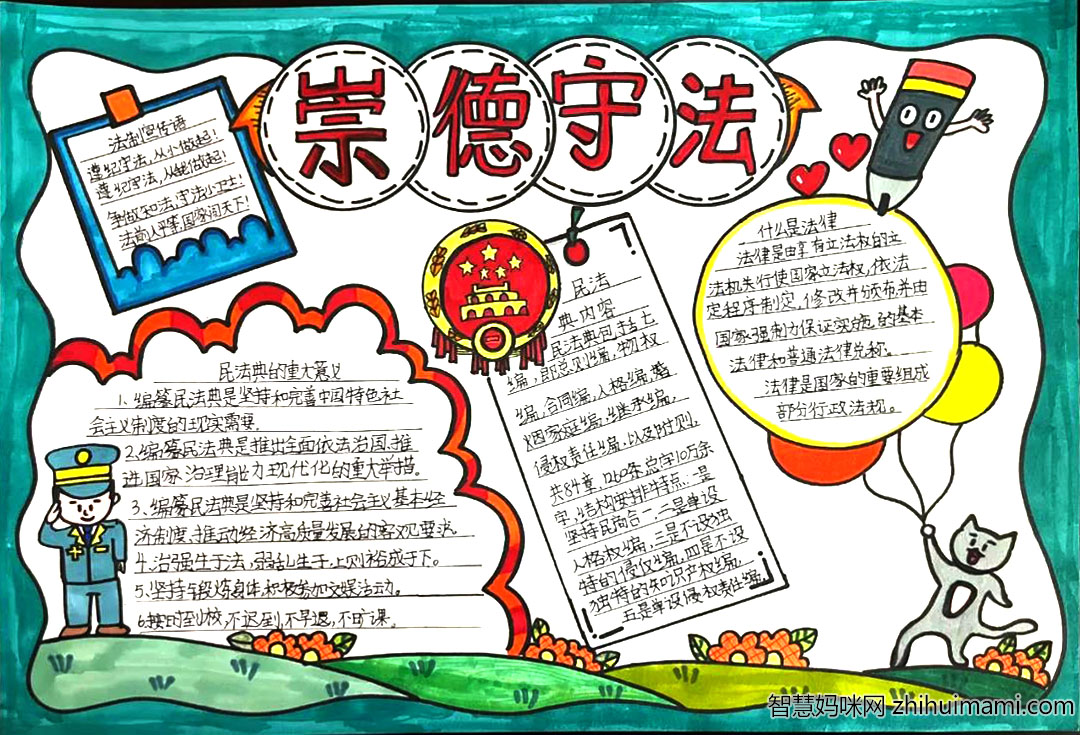 崇德守法
法制宣传语
遵纪守法,从小做起!
遵纪守法,从我做起!
争做和法,守法小卫士!
法前人平等,国家闻天下!
民法典的重大意义
1、编纂民法典是坚持和完善中国特色社
会主义制度的现实需要.
2、编纂民法典是推出全面依法治国、推
进国家治理能力现代化的重大举措。
3、编纂民法典是坚持和完善社会主义基本经
济制度、推动经济高质量发展的客观要求.
4、治强生于法,弱乱生于,上则裕成于下。
5、坚持锻炼身体,积极参加文娱活动。
6、按时到校,不迟到,不早退,不旷课。
民法
典内容
民法典包括七
编,即总则编,物权
编,合同编,人格编,婚
姻家庭编,继承编,
侵权责任编,以及附则,
共84章,1260条总字10万余
字,结构安排特点:一是
坚持民商合一,二是单设
人格权编,三是不设独
特的侵权编,四是不设
独特的知识产权编,
五是单设侵权责任编,
什么是法律
法律是由享有立法权的立
法机关行使国家立法权,依法
定程序制定,修改并颁布并由
国家强制力保证实施的基本
法律和普通法律总称。
法律是国家的重要组成
部分行政法规。
智慧妈咪网 zhihuimami.com